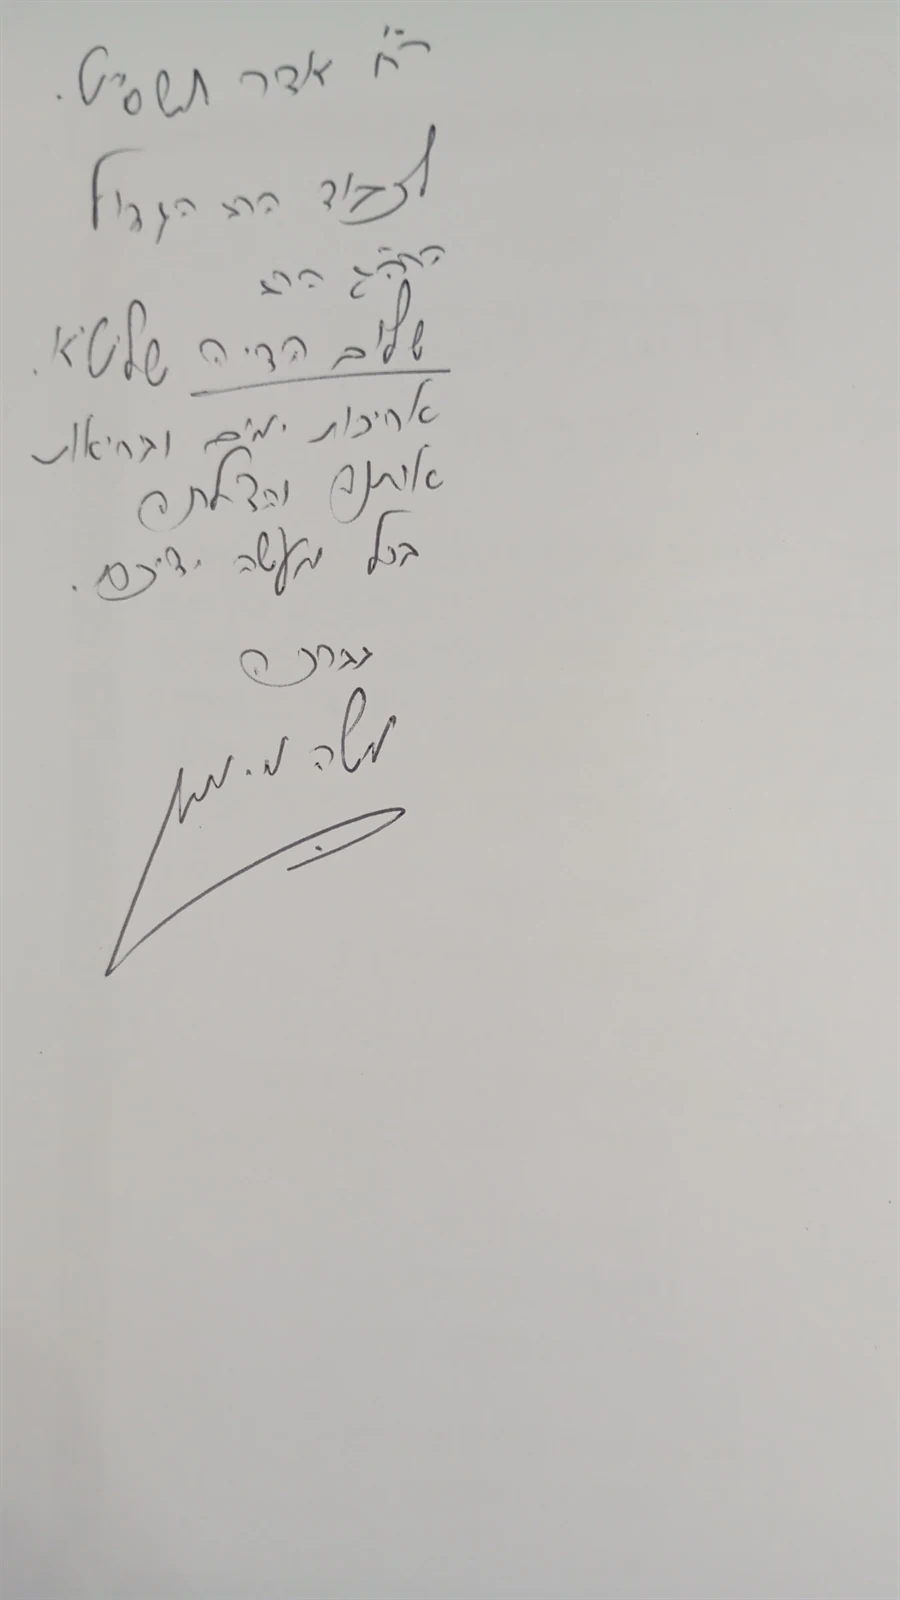 ר"ח אדר תשס"ט.
לכבוד הרב הגדול
הרה"ג הרב
שלום הדיה שליט"א.
אריכות ימים ובריאות
איתנה והצלחה
בכל מעשה ידיכם.
בברכה
משה מימון